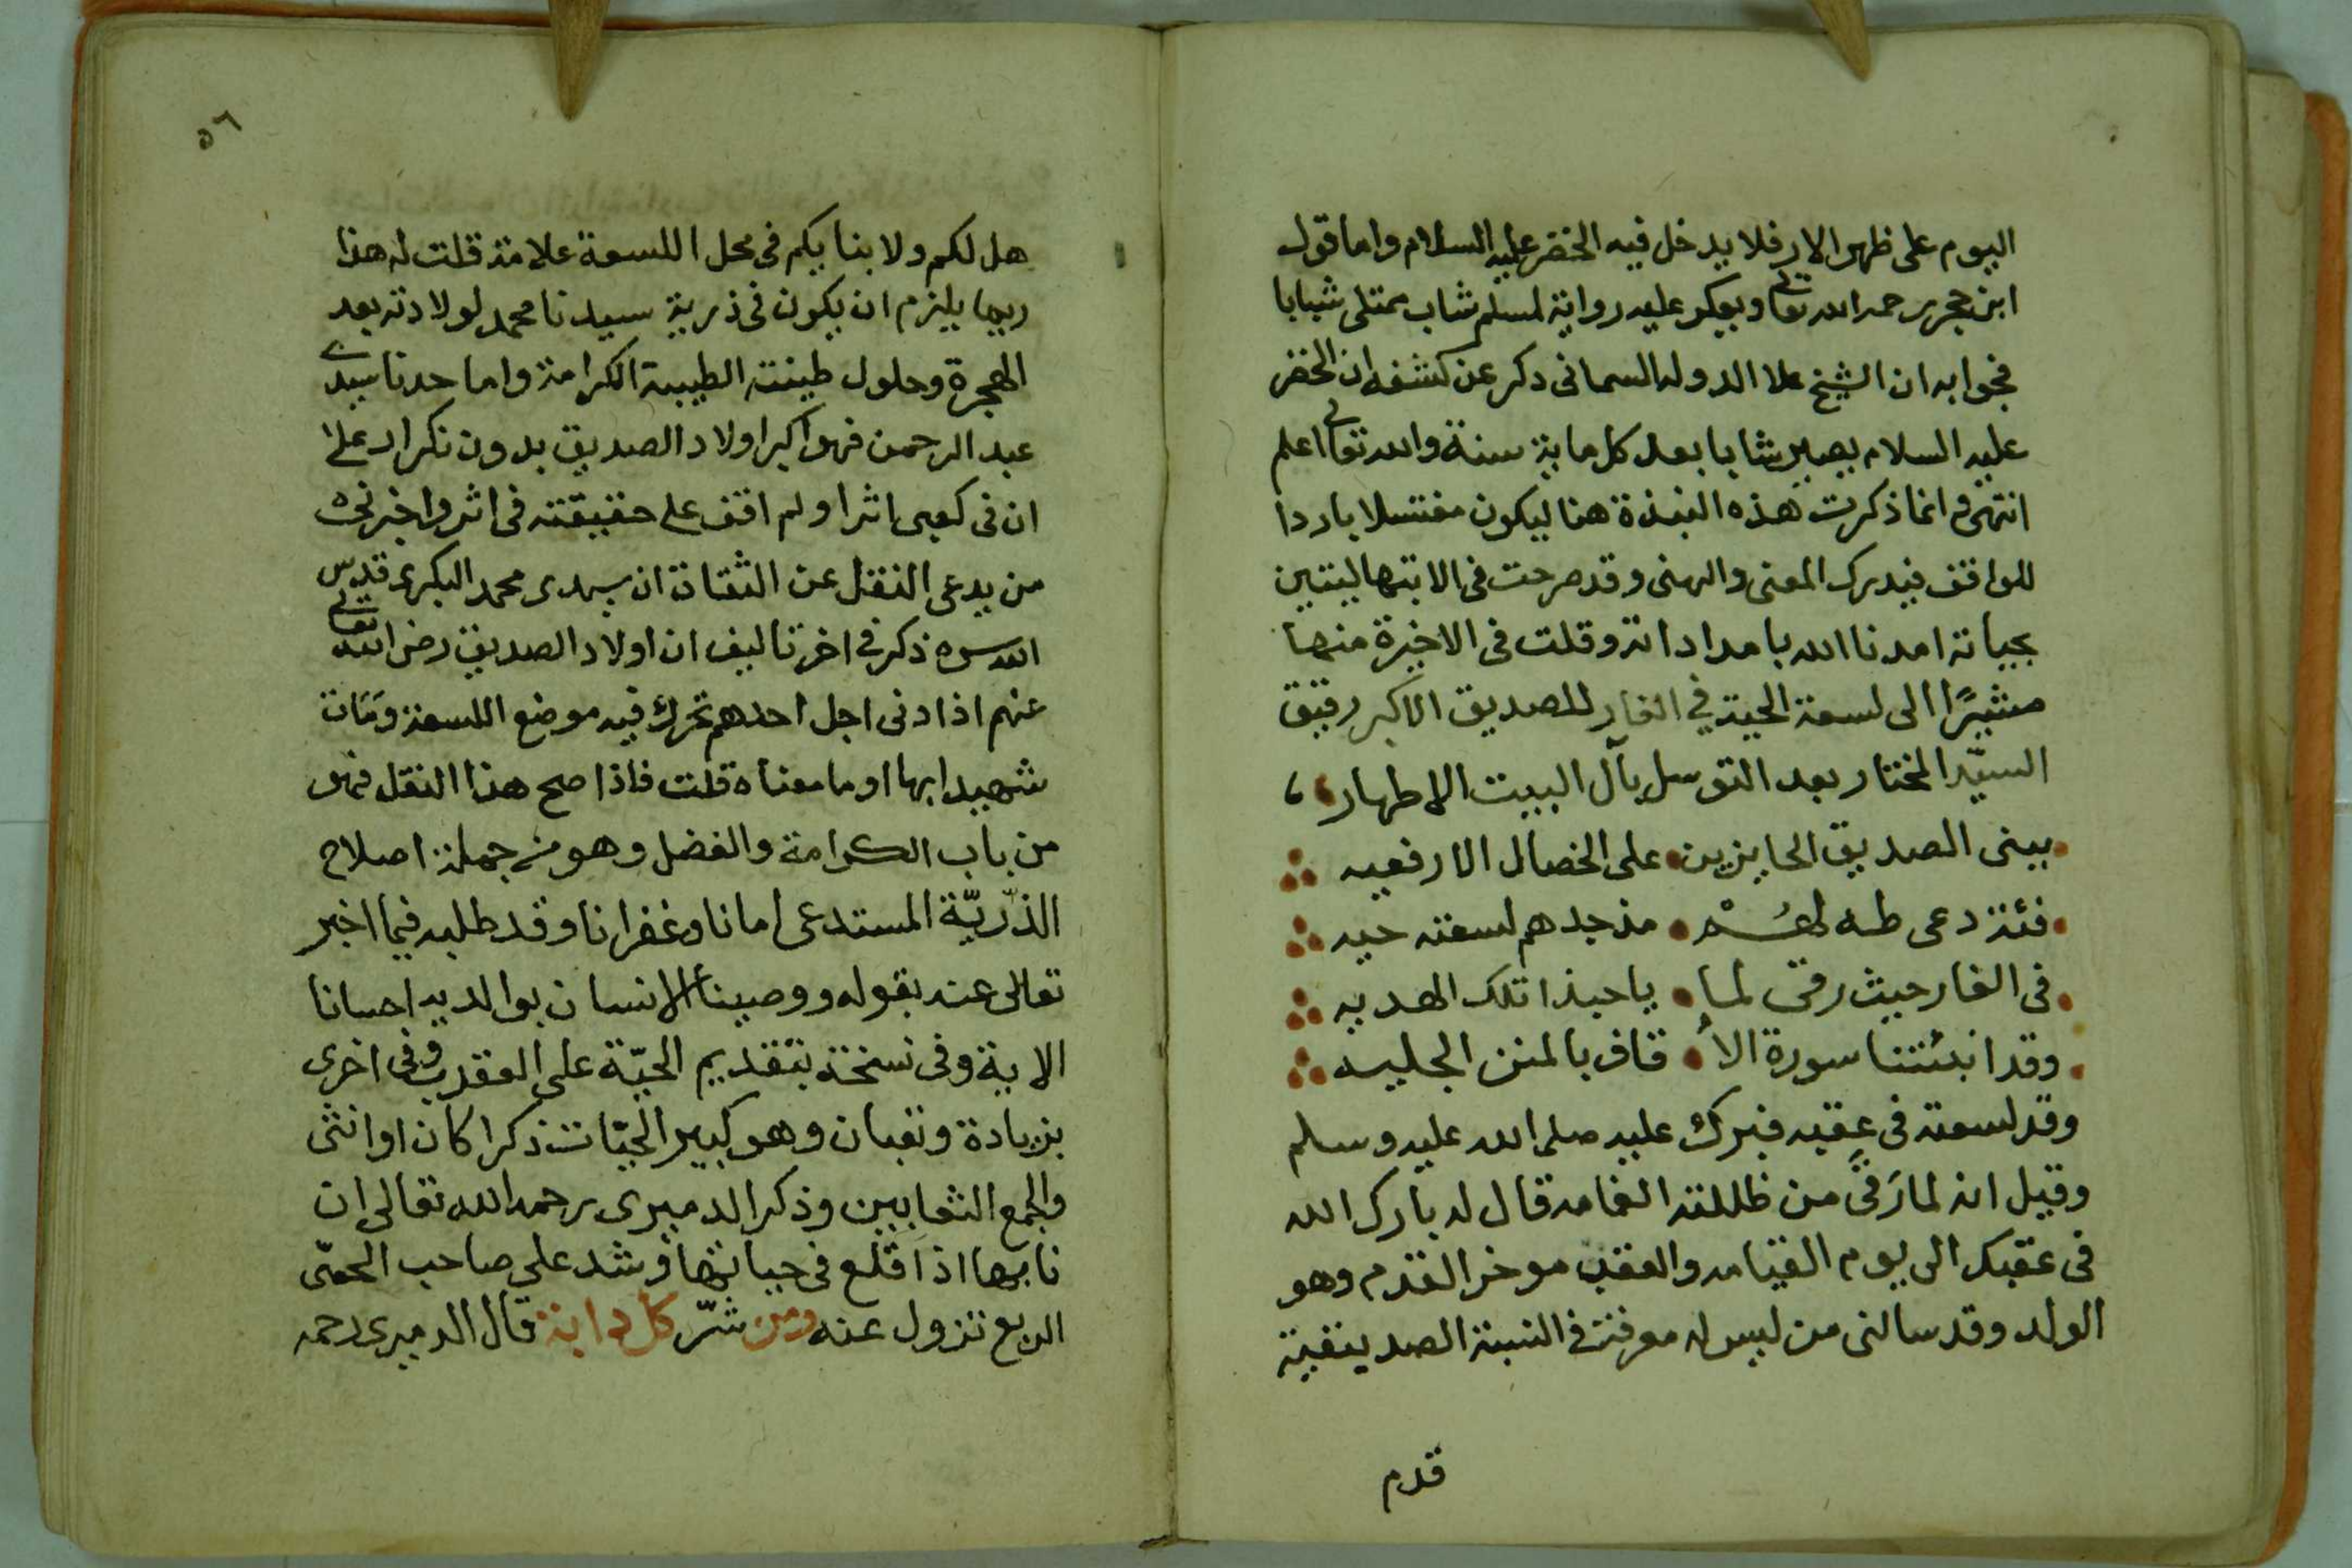 اليوم على ظهر الارض فلا يدخل فيه الخضر عليه السلام واما قول
ابن حجر رحمه الله تعالى ويعكر عليه رواية لمسلم شاب ممتلى شبابا
فجوابه ان الشيخ علا الدوله السمانى ذكر عن كشفه ان الخضر
عليه السلام يصير شابا بعد كل ماية سنة والله تعالى اعلم
انتهى وانما ذكرت هذه النبذة هنا ليكون مغتسلا باردا
للواقف فيدرك المعنى والهنى وقد صرحت فى الابتهاليتين
بحياته امدنا الله بامداداته وقلت فى الاخيرة منهما
مشيرًا الى لسعة الحية في الغار للصديق الاكبر رفيق
السيّد المختار بعد التوسل بآل البيت الاطهار
ببنى الصديق الحايزين على الخصال الارفعيه
فئة دعى طه لهُمْ مذ جدهم لسعته حيه
فى الغار حيث رقى لما يا حبذا تلك الهديه
وقد انبئتنا سورة الأ قاف بالمنن الجليه
وقد لسعته فى عقبه فبرك عليه صلى الله عليه وسلم
وقيل انه لما رَقىَ من ظللته الغمامه قال له بارك الله
فى عقبك الى يوم القيامه والعقب موخر القدم وهو
الولد وقد سالنى من ليس له معرفة فى النسبة الصديقية
قدم
٥٦
هل لكم ولابنايكم فى محل اللسعة علامة قلت له هذا
ربما يلزم ان يكون فى ذرية سيدنا محمد لولادته بعد
الهجرة وحلول طينته الطيبة الكرامة واما جدنا سيدى
عبد الرحمن فهو اكبر اولاد الصديق بدون نكرار على
ان فى كعبى اثرا ولم اقف على حقيقته فى اثر واخبرنى
من يدعى النقل عن الثقاة ان سيدى محمد البكرى قدس
الله سره ذكر في اخر تاليف ان اولاد الصديق رضى الله تعالى
عنهم اذا دنى اجل احدهم تحرك فيه موضع اللسعة وَمَات
شهيدا بها او ما معناه قلت فاذا صح هذا النقل فهو
من باب الكرامة والفضل وهو من جملة اصلاح
الذّريّة المستدعى امانا وغفرانا وقد طلبه فيما اخبر
تعالى عنه بقوله ووصينا الانسان بوالديه احسانا
الاية وفى نسخة بتقديم الحيّة على العقرب وفى اخرى
بزيادة وثعبان وهو كبير الحيّات ذكرا كان او انثى
والجمع الثعابين وذكر الدميرى رحمه الله تعالى ان
نابها اذا قلع فى حياتها وشد على صاحب الحمّى
الربع تزول عنه ومن شرّ كل دابة قال الدميرى رحمه